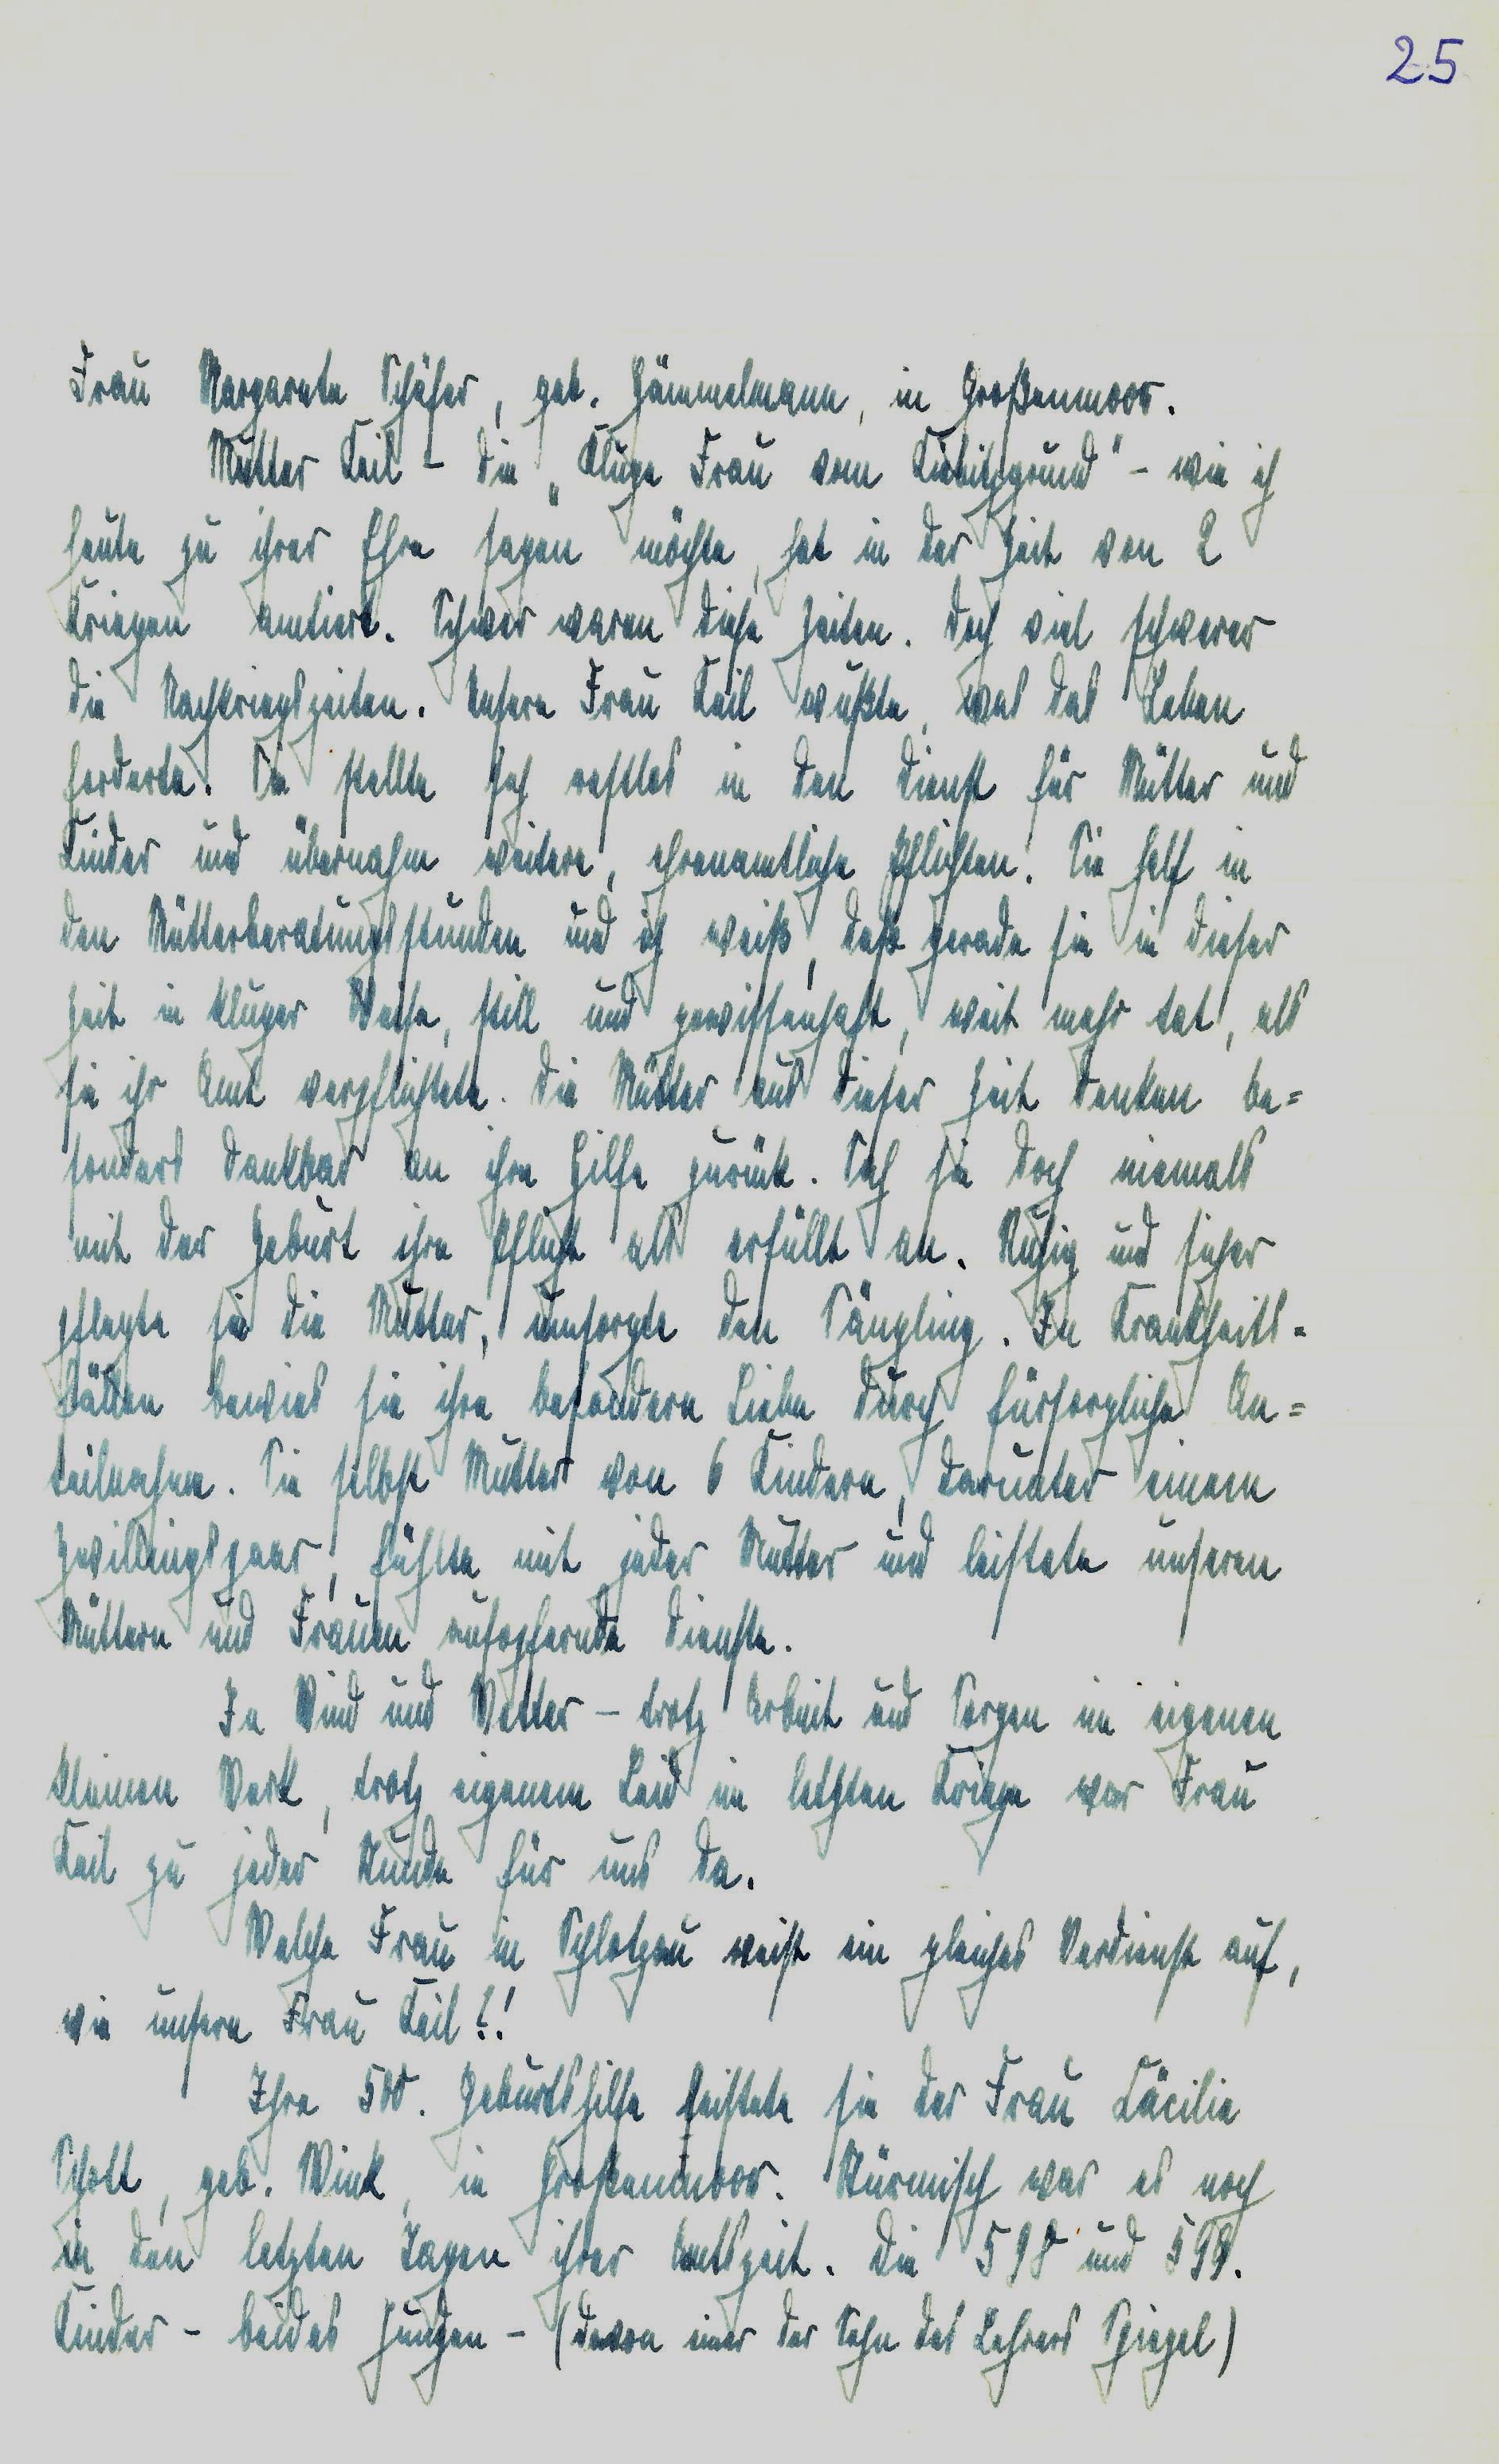 25
Frau Margarete Schäfer, geb. Hämmelmann, in Großenmoor.
Mutter Keil - die „Kluge Frau vom Kiebitzgrund" - wie ich
heute zu ihrer Ehre sagen möchte, hat in der Zeit von 2
Kriegen amtiert. Schwer waren diese Zeiten. Doch viel schwerer
die Nachkriegszeiten. Unsere Frau Keil wußte, was das Leben
forderte. Sie stellte sich restlos in den Dienst für Mütter und
Kinder und übernahm weitere, ehrenamtliche Pflichten. Sie half in
den Mütterberatungsstunden und ich weiß, daß gerade sie in dieser
Zeit in kluger Weise, still und gewissenhaft, weit mehr tat, als
sie ihr Amt verpflichtete. Die Mütter aus dieser Zeit denken be=
sonders dankbar an ihre Hilfe zurück. Sah sie doch niemals
mit der Geburt ihre Pflicht als erfüllt an. Ruhig und sicher
pflegte sie die Mutter, umsorgte den Säugling. In Krankheits-
fällen bewies sie ihre besondere Liebe durch fürsorgliche An=
teilnahme. Sie selbst Mutter von 6 Kindern, darunter einem
Zwillingspaar, fühlte mit jeder Mutter und leistete unseren
Müttern und Frauen aufopfernde Dienste.
In Wind und Wetter - trotz Arbeit und Sorgen im eigenen
kleinen Werk, trotz eigenem Leid im letzten Kriege war Frau
Keil zu jeder Stunde für uns da.
Welche Frau in Schlotzau weist ein gleiches Verdienst auf,
wie unsere Frau Keil?!
Ihre 500. Geburtshilfe leistete sie der Frau Cäcilie
Schott, geb. Wink, in Großenmoor. Stürmisch war es noch
in den letzten Tagen ihrer Amtszeit. Die 598 und 599.
Kinder - beides Jungen - (davon einer der Sohn des Lehrers Spiegel)